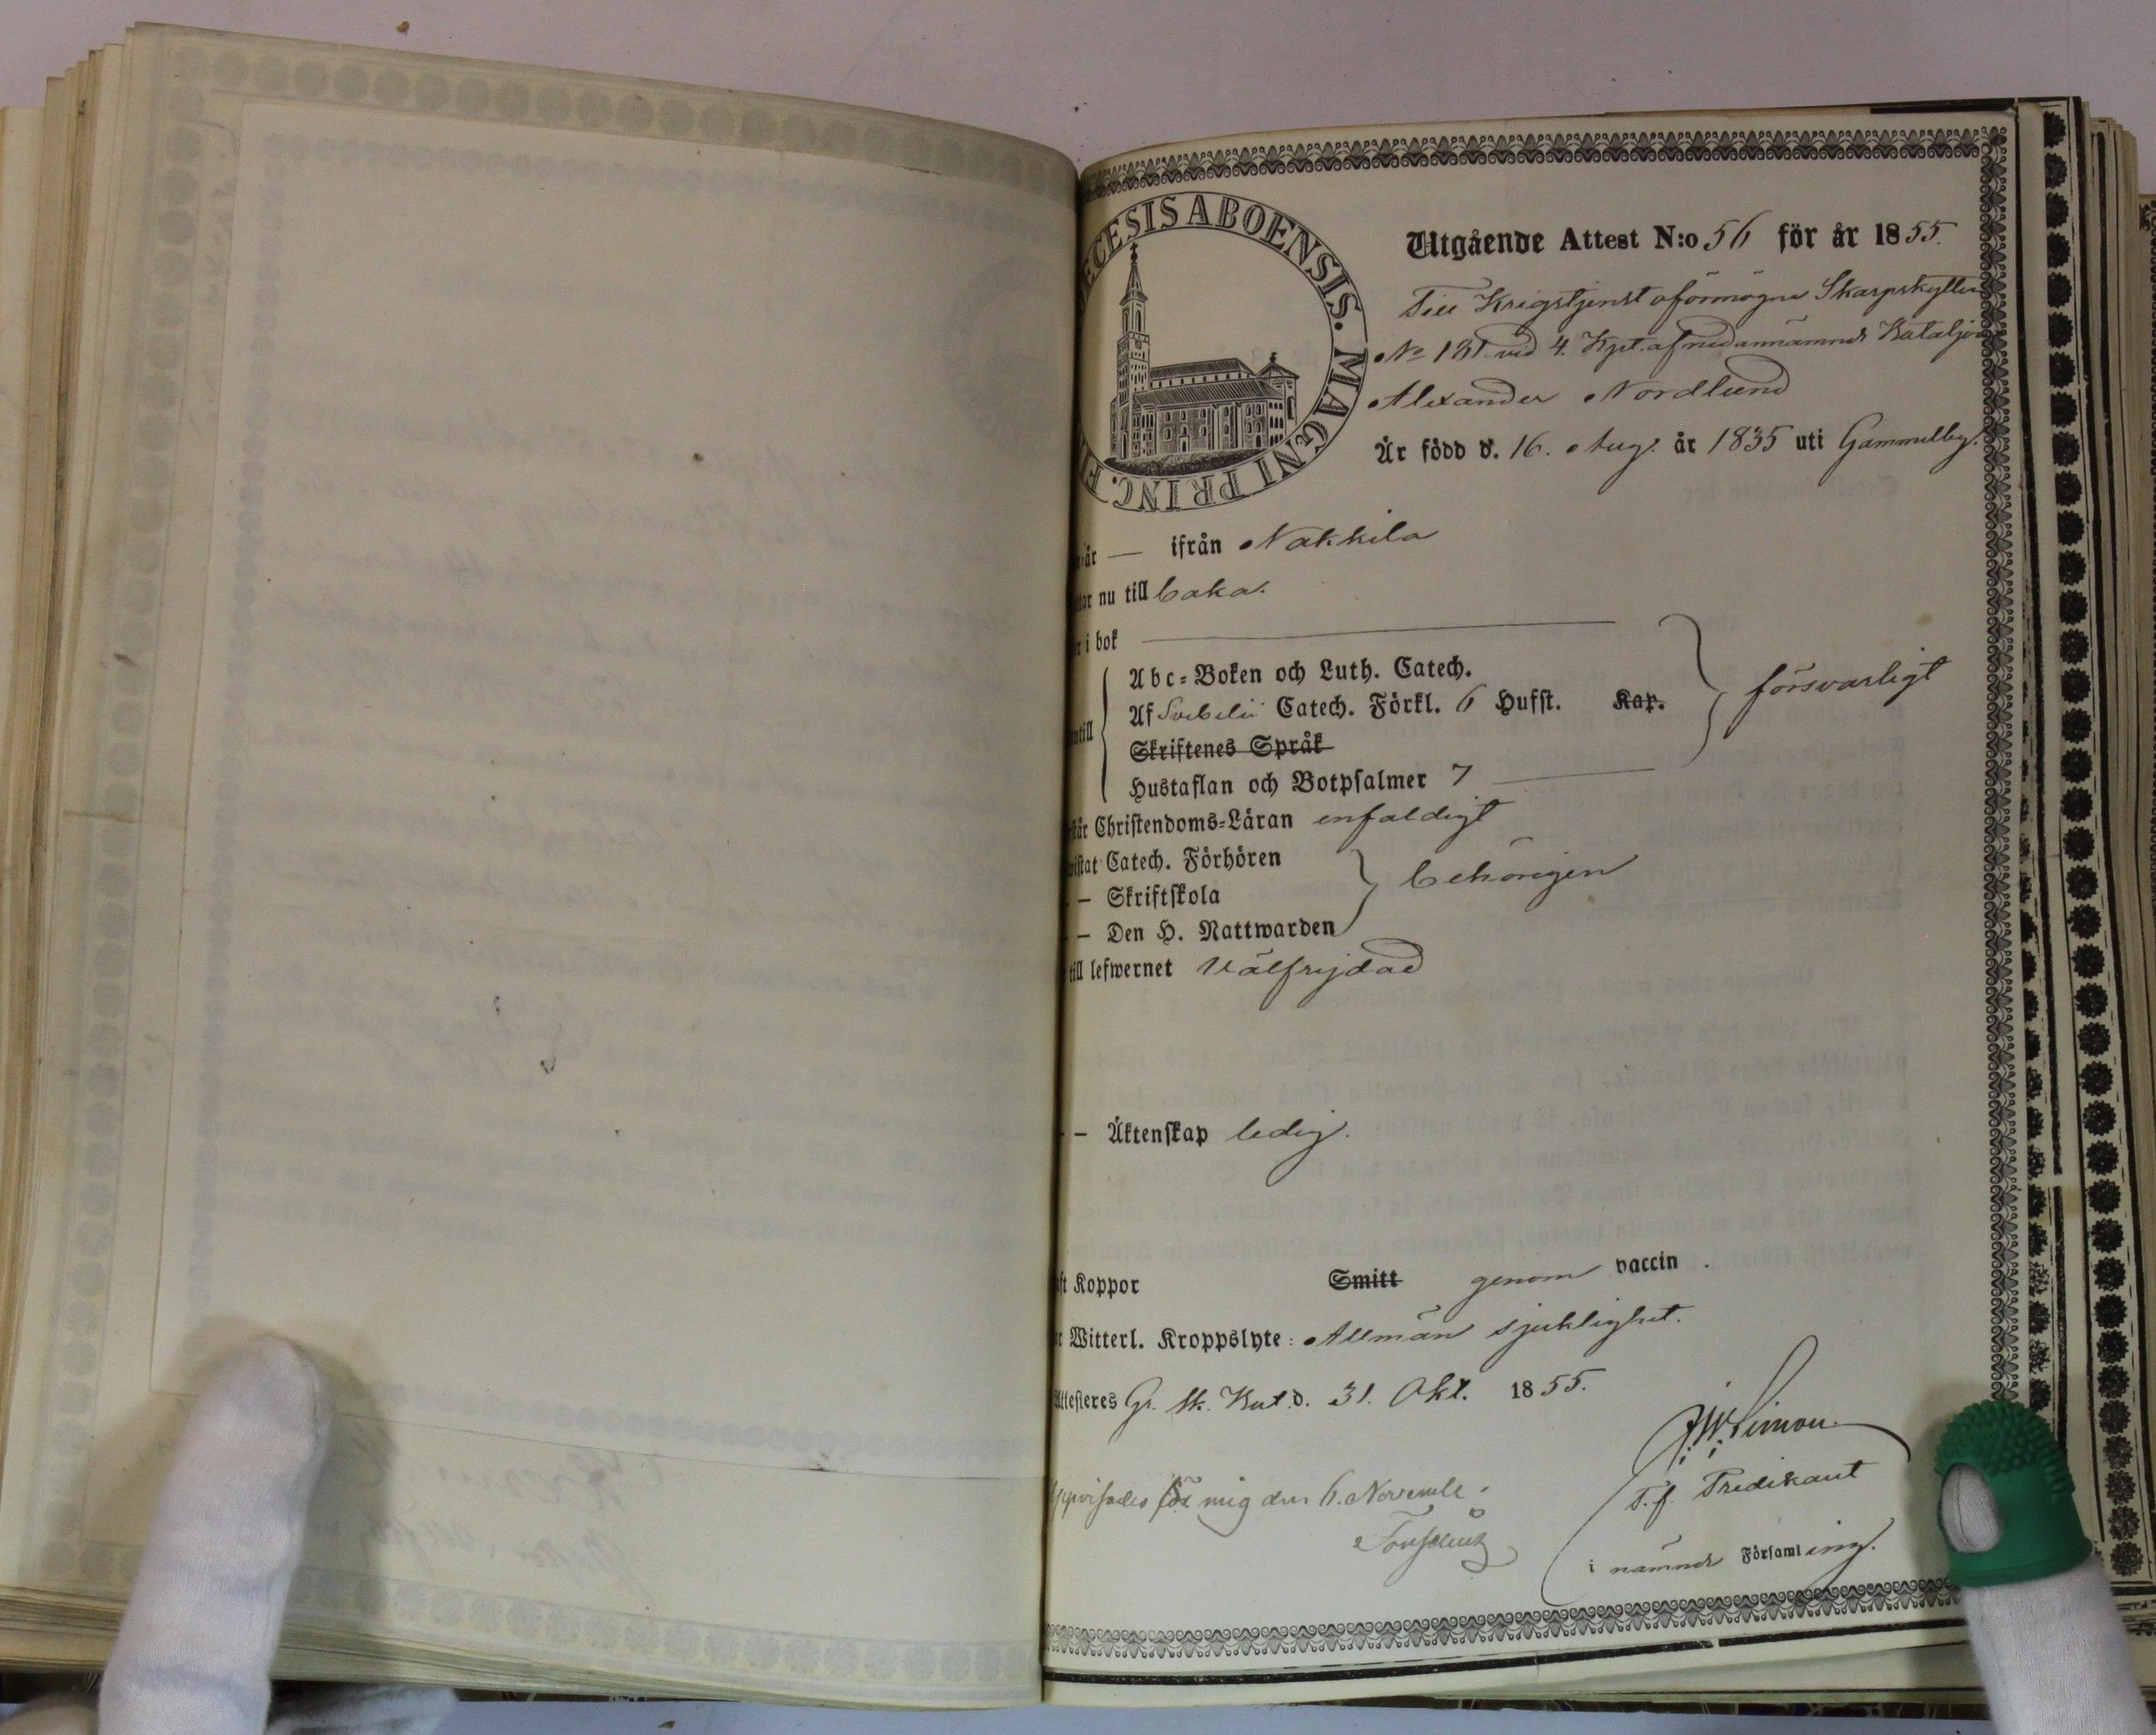 ECESIS ABOENSIS. MAGNI PRINC. FI
Utgående Attest N:o 56 för år 1855.
Till Krigstjenst oförmögne Skarpskytten
No 181 vid 4. Kpt. af nedannämnde Bataljon
Alexander Nordlund
Är född d. 16. Aug. år 1835 uti Gammelby.
år — ifrån Nakkila
tar nu till baka.
r i bok
Abc-Boken och Luth. Catech.
Af Svebelii Catech. Förkl. 6 Hufst. Kap.
ntill
försvarligt
Skriftenes Språk
Hustaflan och Botpsalmer 7
står Christendoms-Läran enfaldigt
wistat Catech. Förhören
– Skriftskola
behörigen
– Den H. Nattwarden
till lefwernet Välfrejdad
– Äktenskap ledig.
ft Koppor Smitt genom vaccin.
r Witterl. Kroppslyte: Allmän sjuklighet.
Attesteres Gr. Sk. Bat. d. 31. Okt. 1855.
J. W. Limon
T. f. Predikant
i nämnde Församling.
Uppvisades för mig den 6. Novemb.